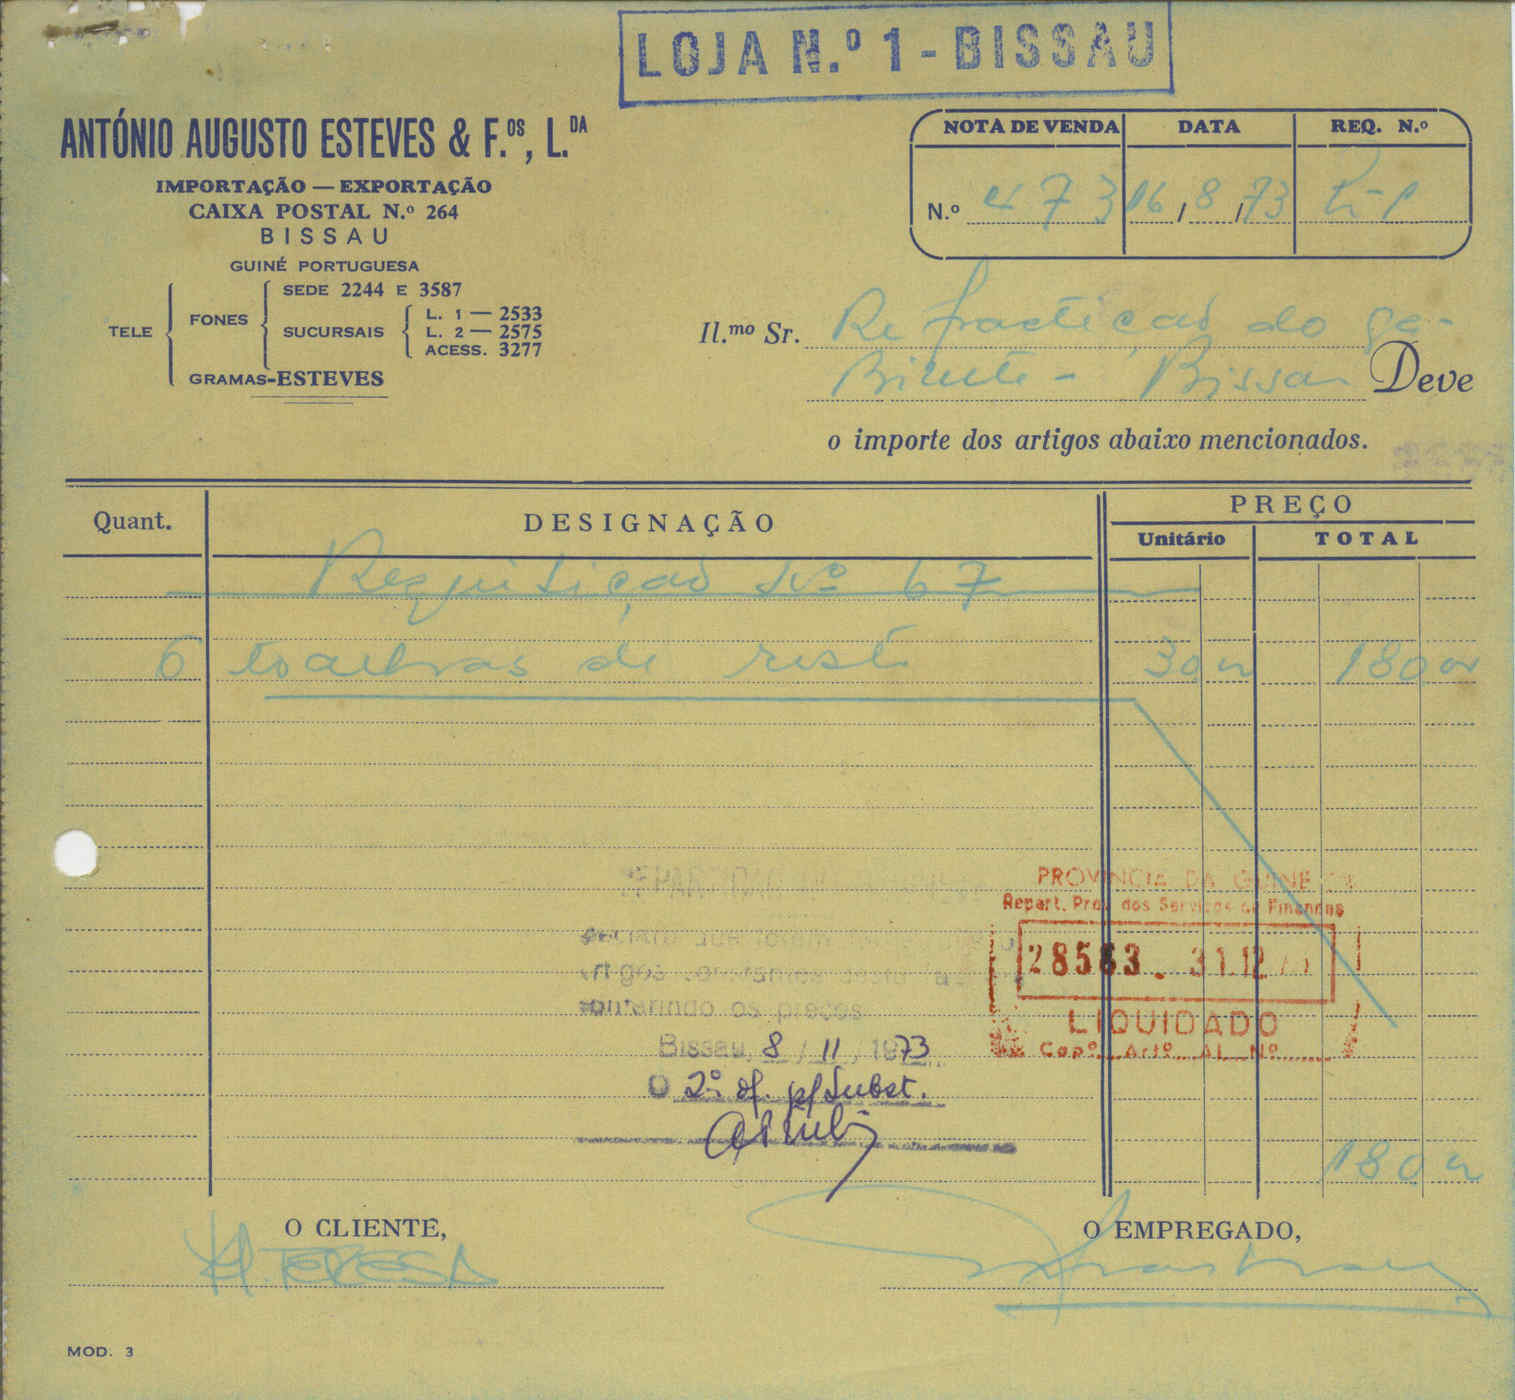 LOJA N.º 1 - BISSAU
ANTÓNIO AUGUSTO ESTEVES & F.OS, L.DA
IMPORTAÇÃO — EXPORTAÇÃO
CAIXA POSTAL N.º 264
BISSAU
GUINÉ PORTUGUESA
TELE
FONES
SEDE 2244 E 3587
SUCURSAIS
L. 1 — 2533
L. 2 — 2575
ACESS. 3277
GRAMAS-ESTEVES
NOTA DE VENDA DATA REQ. N.º
N.º 473 16,8,73
Il.mo Sr. Repartição do Ga-
binete - Bissau Deve
o importe dos artigos abaixo mencionados.
Quant. DESIGNAÇÃO PREÇO
Unitário TOTAL
Requisição Nº 67
6 toalhas de 30 180
PROVINCIA DA GUINE
Repart. Prov. dos Serviços de Finanças
28563. 31.12
LIQUIDADO
Capº Artº Al. Nº
que foram
artigos constantes desta
os preços
Bissau, 8 / 11 / 1973
O 2º of. p/Subst.
180
O CLIENTE, O EMPREGADO,
MOD. 3